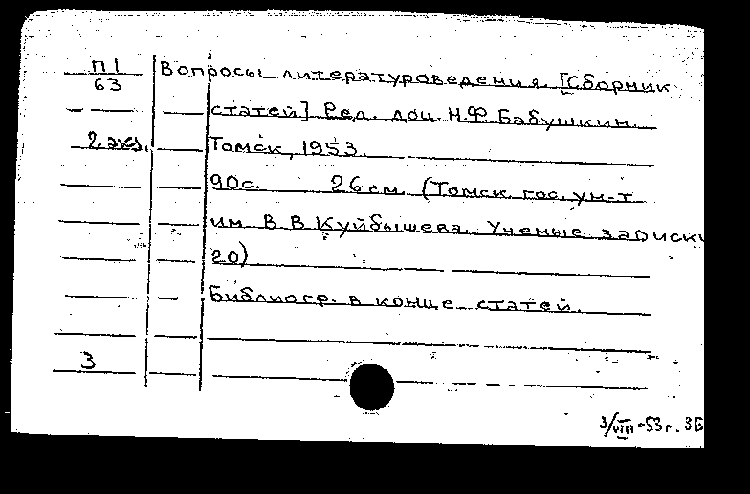 П1 Вопросы литературоведения. [Сборник
63
статей] Ред. доц. Н.Ф. Бабушкин.
2 экз. Томск, 1953.
90с. 26 см. (Томск. гос. ун-т
им. В.В. Куйбышева. Ученые записки
20)
Библиогр. в конце статей.
3
3/VIII-53 г. ЗБ